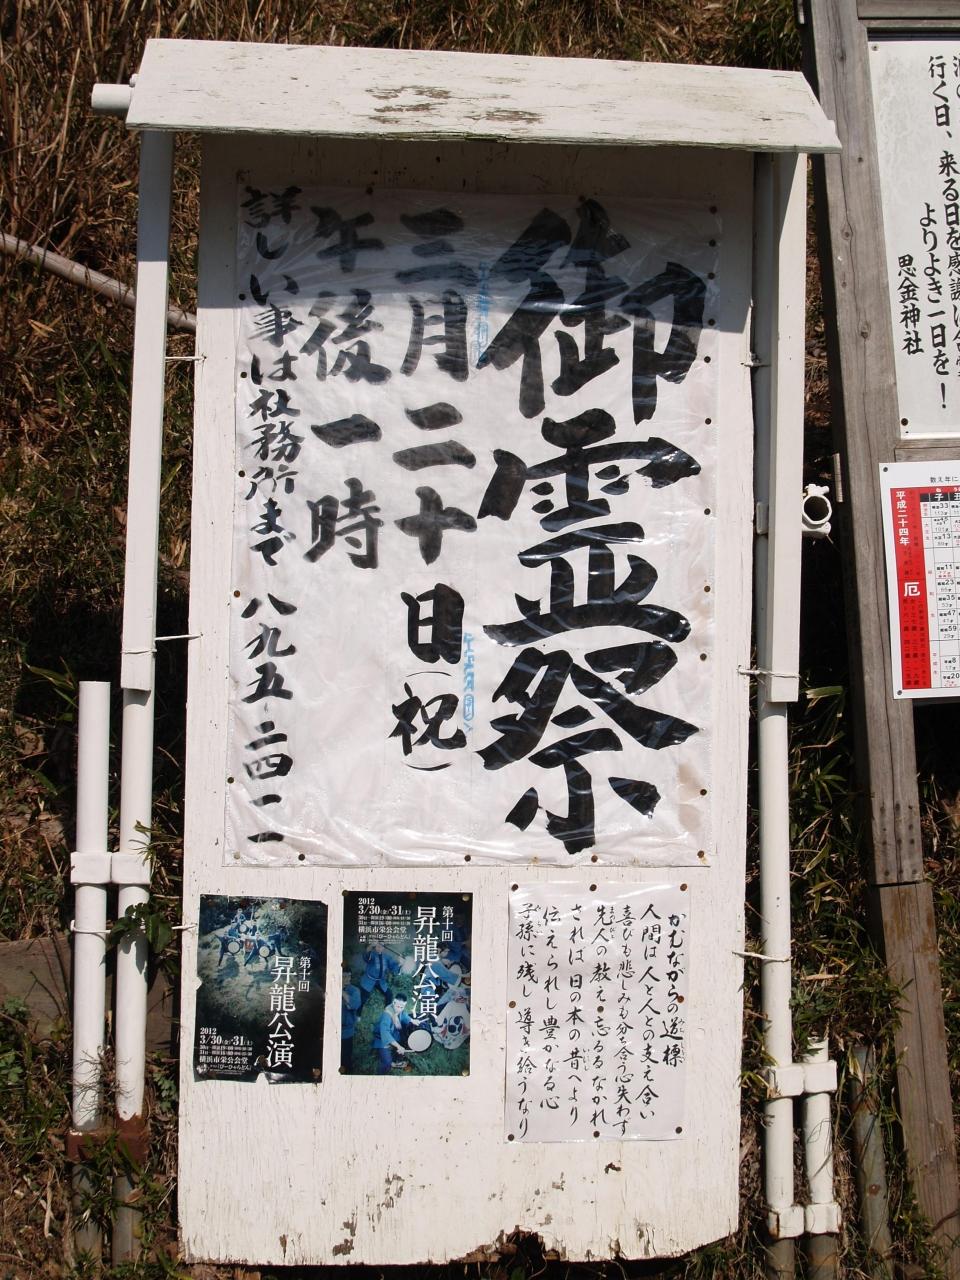 御霊祭
三月二十日(祝)
午後一時
詳しい事は社務所まで 八九五-二四二一
行く日、来る日を感謝に
よりよき一日を!
思金神社
数え年に
平成二十四年
厄
第十回
昇龍公演
2012
3/30(金)・31(土)
横浜市栄公会堂
2012
3/30(金)・31(土)
横浜市栄公会堂
第十回
昇龍公演
かむながらの道標
人間は人と人との支え合い
喜びも悲しみも分ち合う心失わず
先人の教え忘るるなかれ
されは日の本の昔へより
伝えられし豊かなる心
子孫に残し導き給うなり